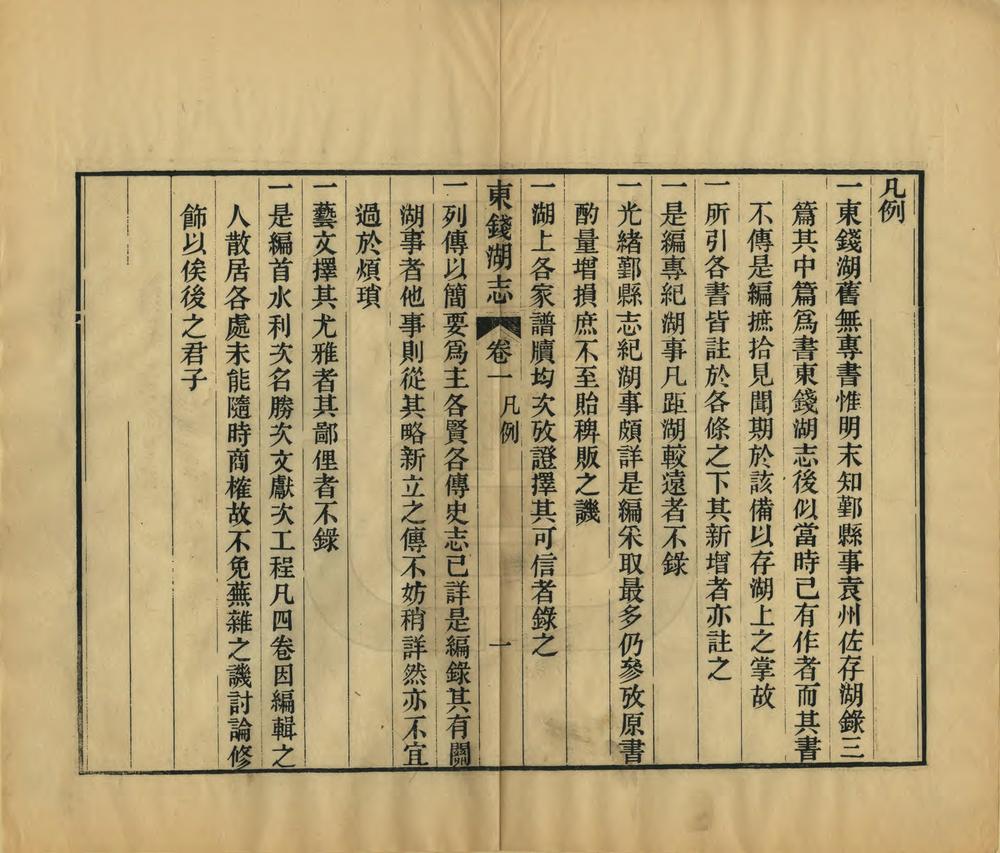 凡例
一東錢湖舊無專書惟明末知鄞縣事袁州佐存湖錄三
篇其中篇爲書東錢湖志後似當時已有作者而其書
不傳是編摭拾見聞期於該備以存湖上之掌故
一所引各書皆註於各條之下其新增者亦註之
一是編專紀湖事凡距湖較遠者不錄
一光緒鄞縣志紀湖事頗詳是編采取最多仍參攷原書
酌量增損庶不至貽稗販之譏
一湖上各家譜牘均次攷證擇其可信者錄之
東錢湖志 卷一 凡例 一
一列傳以簡要爲主各賢各傳史志已詳是編錄其有關
湖事者他事則從其略新立之傳不妨稍詳然亦不宜
過於煩瑣
一藝文擇其尤雅者其鄙俚者不錄
一是編首水利次名勝次文獻次工程凡四卷因編輯之
人散居各處未能隨時商榷故不免蕪雜之譏討論修
飾以俟後之君子